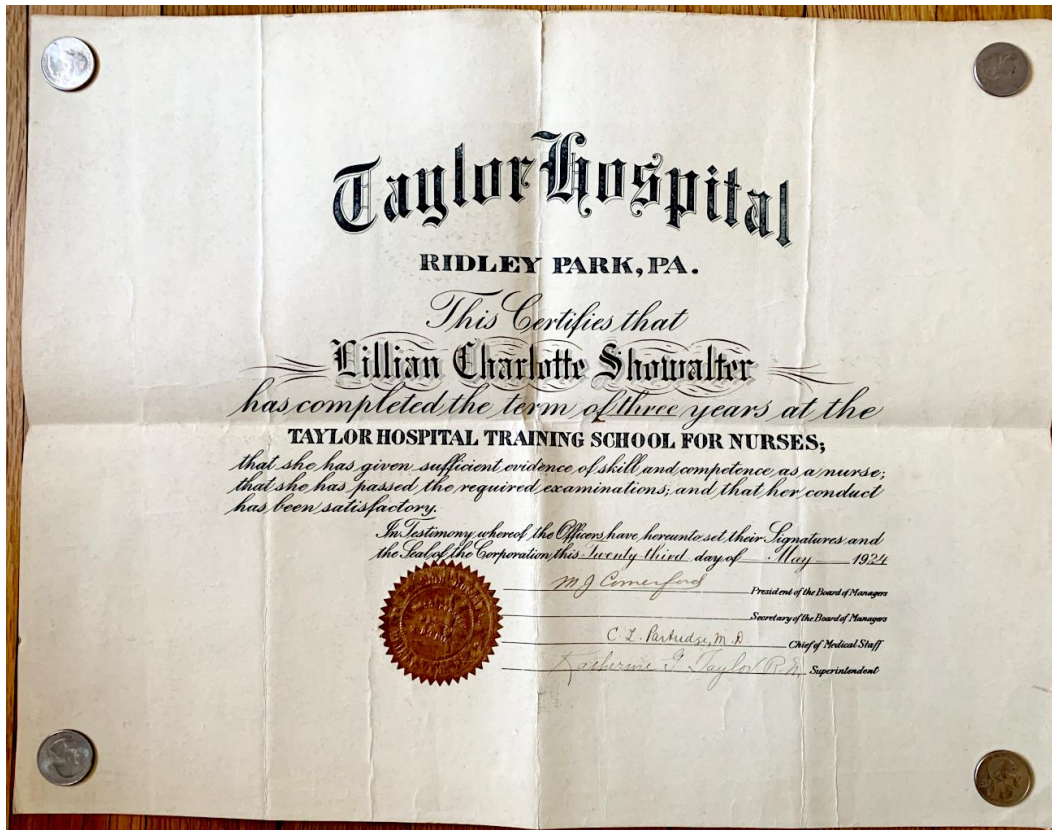 Taylor Hospital
RIDLEY PARK, PA.
This Certifies that
Lillian Charlotte Showalter
has completed the term of three years at the
TAYLOR HOSPITAL TRAINING SCHOOL FOR NURSES;
that she has given sufficient evidence of skill and competence as a nurse;
that she has passed the required examinations; and that her conduct
has been satisfactory.
In Testimony whereof the Officers have hereunto set their Signatures and
the Seal of the Corporation, this Twenty third day of May 1924
M J Comerford President of the Board of Managers
Secretary of the Board of Managers
C. L. Partridge, M.D Chief of Medical Staff
Katherine G Taylor R.N. Superintendent